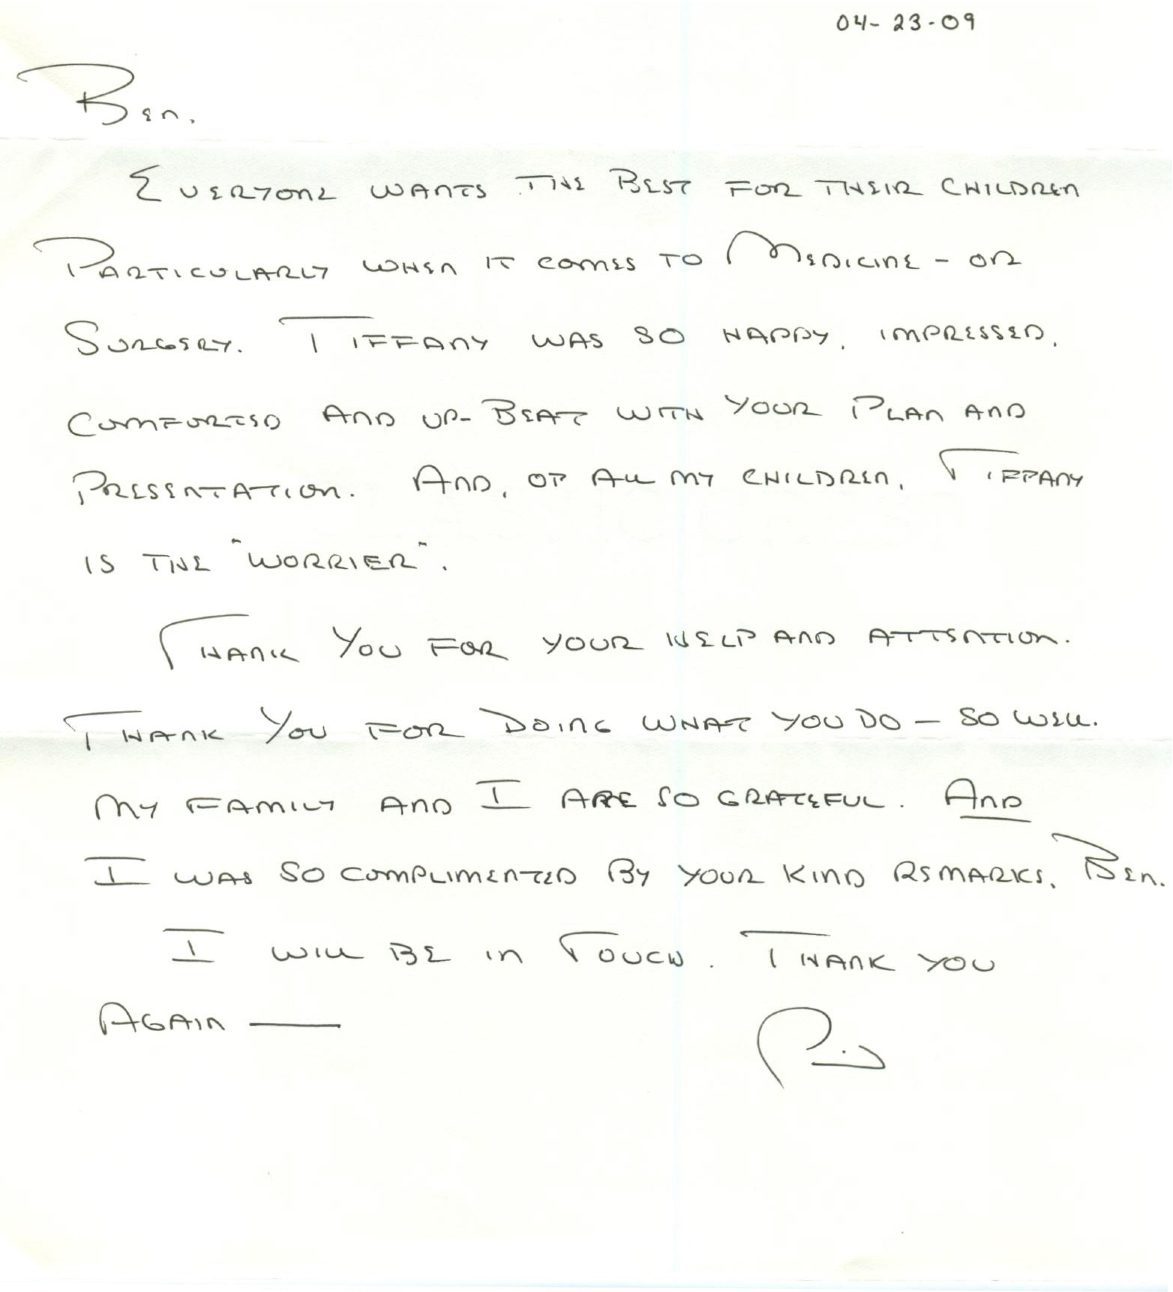 04-23-09
Ben,
EVERYONE WANTS THE BEST FOR THEIR CHILDREN
PARTICULARLY WHEN IT COMES TO MEDICINE - OR
SURGERY. TIFFANY WAS SO HAPPY, IMPRESSED,
COMFORTED AND UP-BEAT WITH YOUR PLAN AND
PRESENTATION. AND, OF ALL MY CHILDREN, TIFFANY
IS THE "WORRIER".
THANK YOU FOR YOUR HELP AND ATTENTION.
THANK YOU FOR DOING WHAT YOU DO - SO WELL.
MY FAMILY AND I ARE SO GRATEFUL. AND
I WAS SO COMPLIMENTED BY YOUR KIND REMARKS, BEN.
I WILL BE IN TOUCH. THANK YOU
AGAIN —